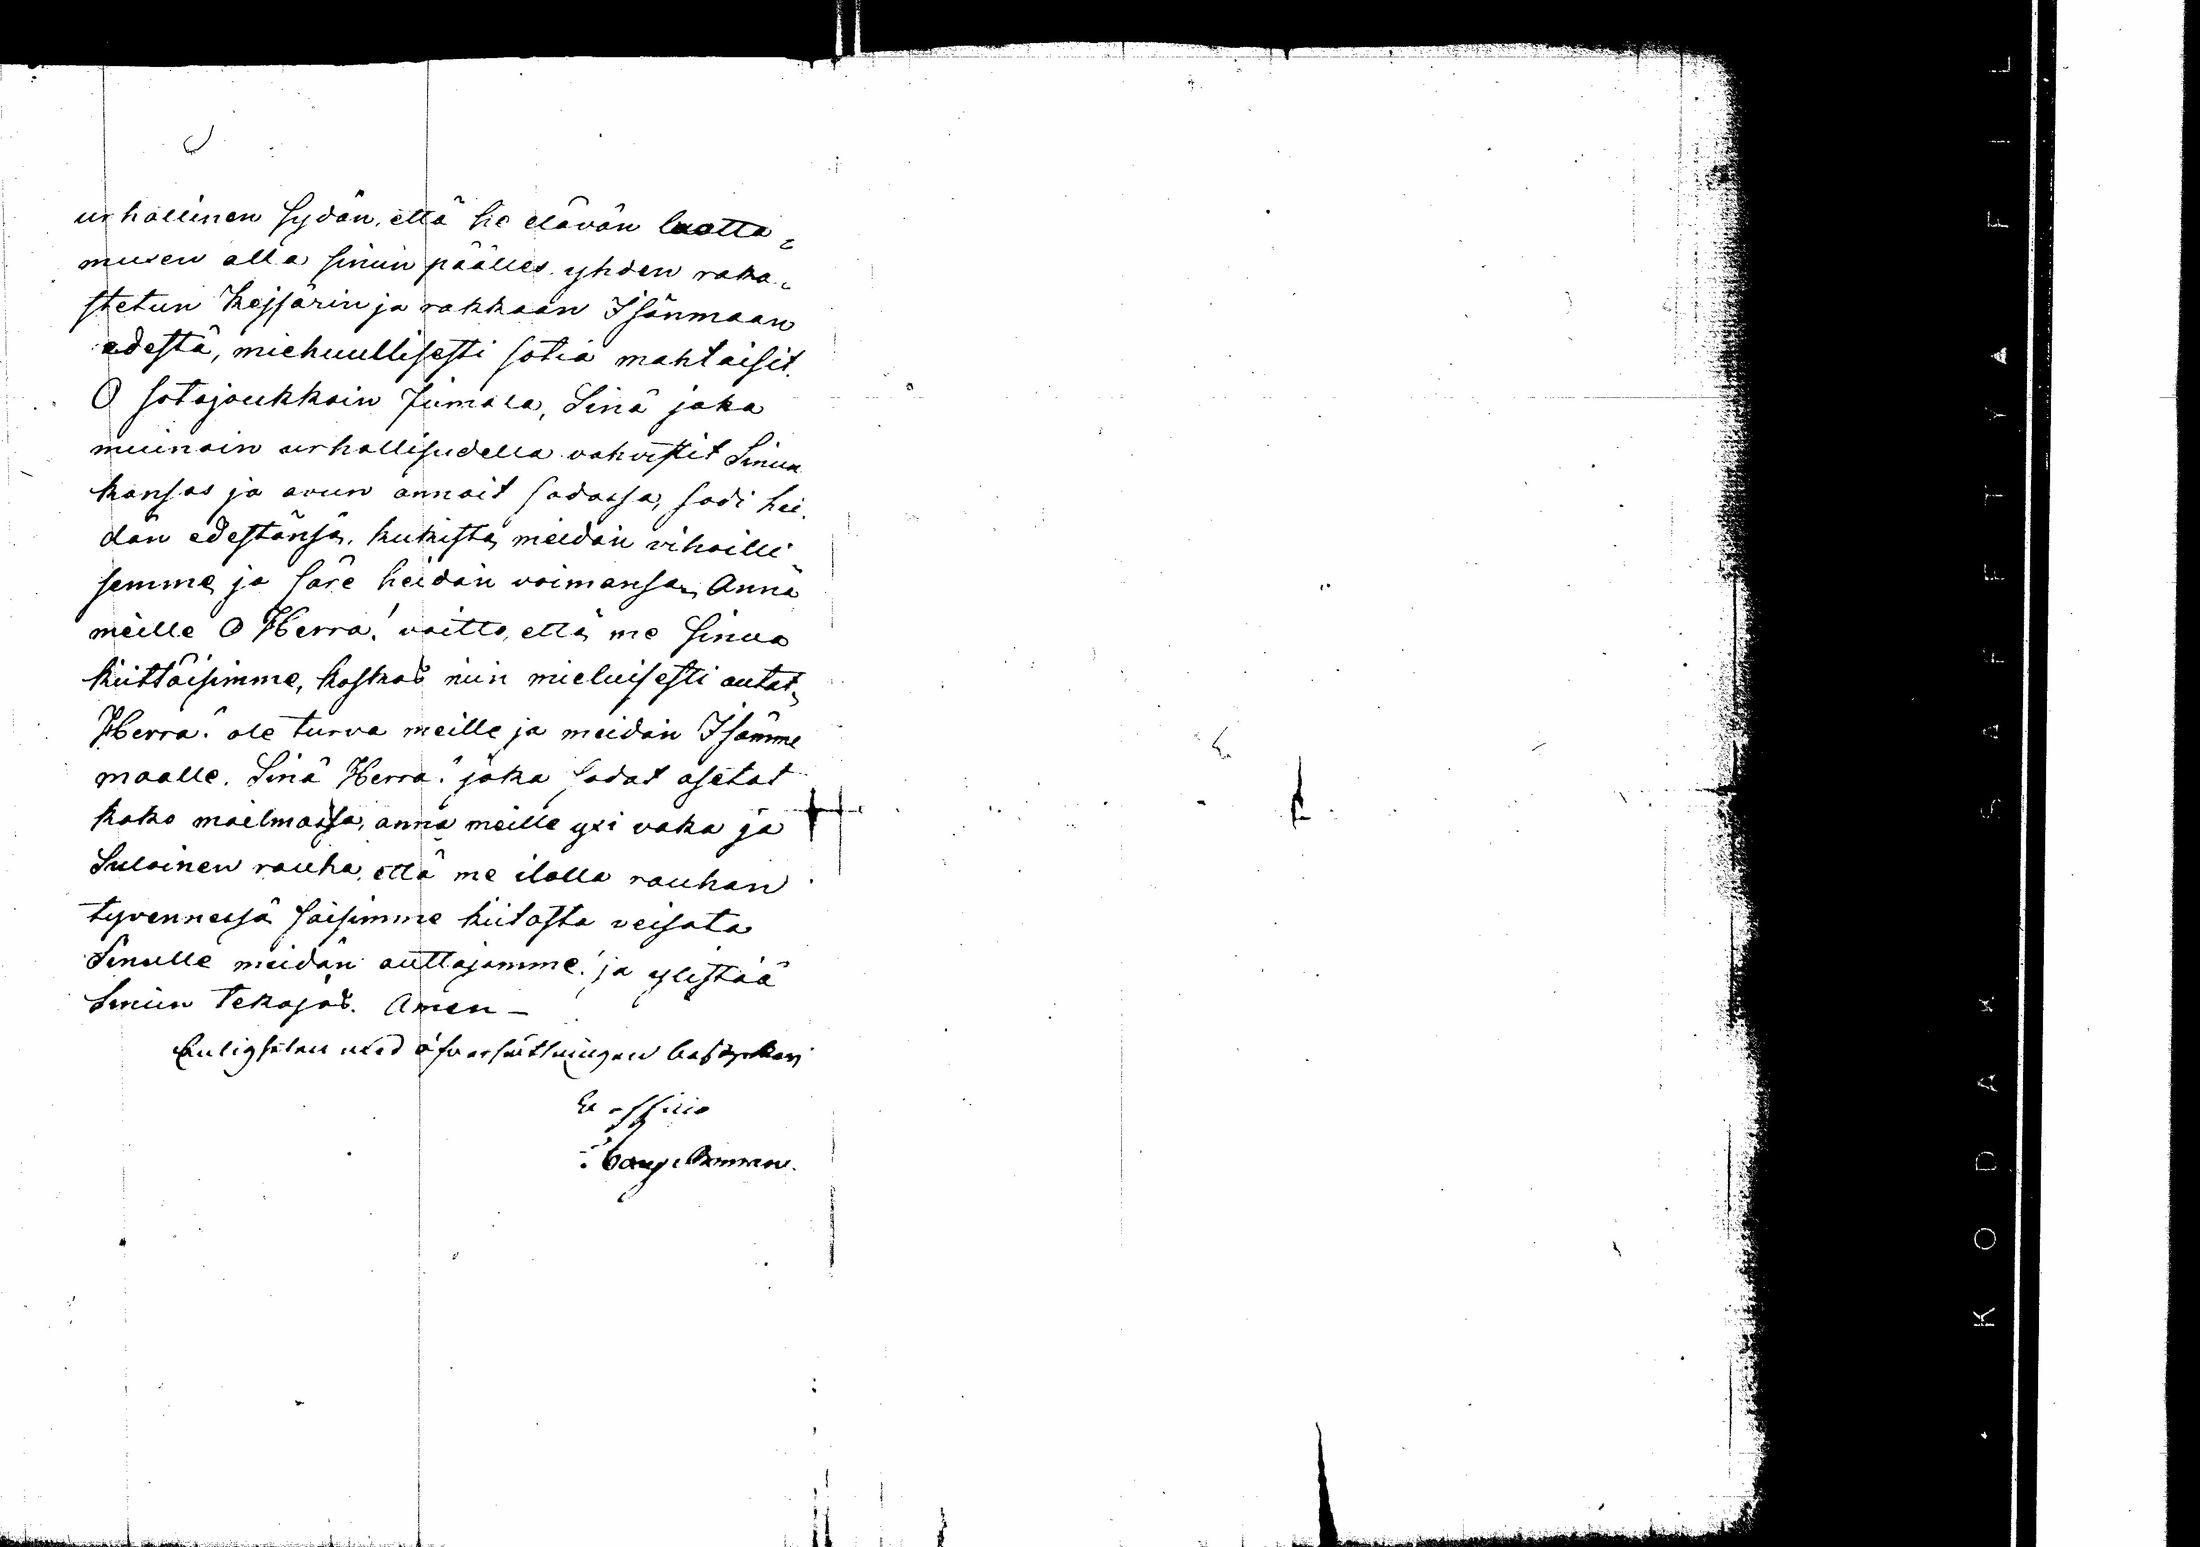 urhollinen sydän, että he elävän luotta=
musen alla sinun päälles yhden raka=
stetun Kejsarin ja rakkaan Isänmaan
edestä, miehuullisesti sotia mahtaisit.
O sotajoukkoin Jumala, Sinä joka
muinoin urhollisudella vahvistit Sinun
kansas ja avun annoit sodassa, sodi hei-
dän edestänsä, kukista meidän viholli
semme ja säre heidän voimansa, Anna
meille O Herra! voitto, että me sinua
kiittäisimme, koskas niin mieluisesti autat,
Herra! ole turva meille ja meidän Isämme
maalle. Sinä Herra! joka sodat asetat
koko mailmassa, anna meille yxi vaka ja
Suloinen rauha, että me ilolla rauhan
tyvennessä saisimme kiitosta veisata
Sinulle meidän auttajamme! ja ylistää
Sinun tekojas. Amen –
Enligheten med öfversättningen bestyrker
Ex officio
KODAK SAFETY A FIL